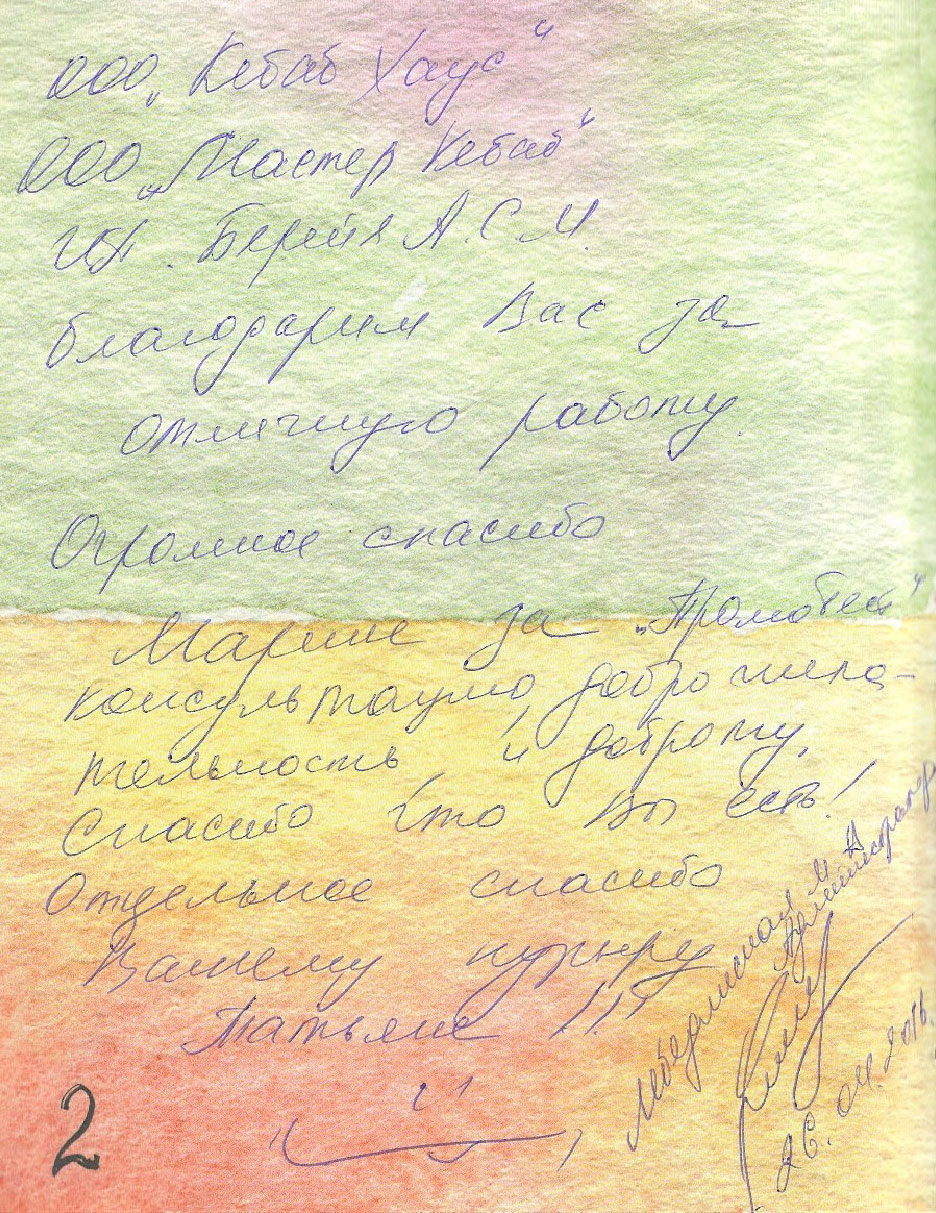 ООО „Кебаб Хаус“
ООО „Мастер Кебаб“
ИП. Берейя А.С.М.
благодарим Вас за
отличную работу.
Огромное спасибо
Марине за „Промобест“
консультацию, доброжела-
тельность, и доброту,
Спасибо что Вы есть!
Отдельное спасибо
Вашему курьеру
Татьяне !!!
М. А.
Администратор
26.04.2016
2